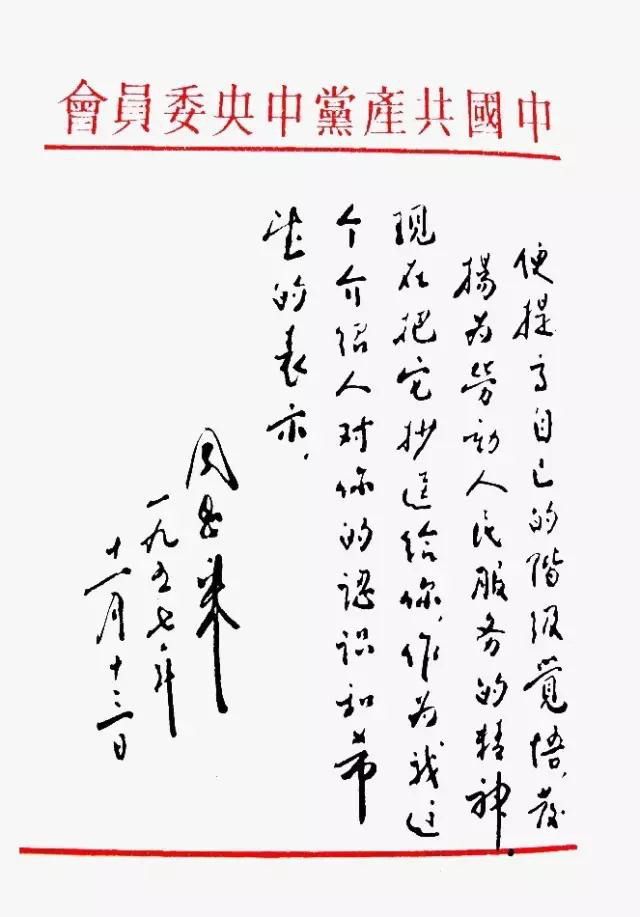 中國共產黨中央委員會
便提高自己的階級覺悟，發
揚为勞動人民服务的精神．
现在把它抄送给你，作为我这
个介绍人对你的認识和希
望的表示．
周恩来
一九五七年
十一月十三日